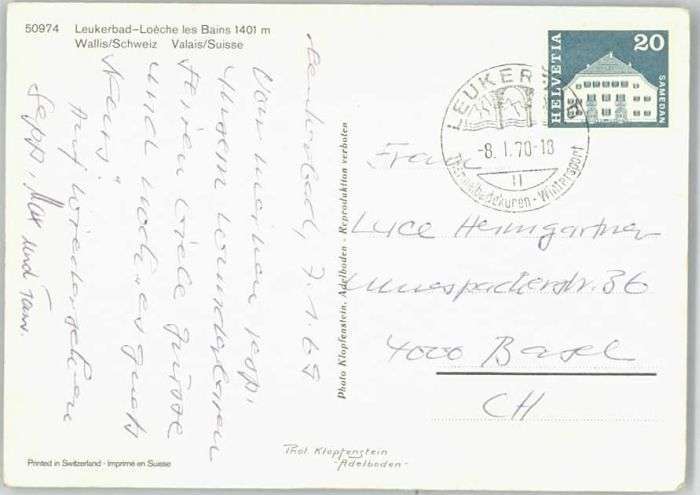 50974 Leukerbad–Loèche les Bains 1401 m
Wallis/Schweiz Valais/Suisse
HELVETIA
20
SAMEDAN
LEUKERBAD
-8.1.70-18
11
Thermalbadekuren - Wintersport
Leukerbad, 7.1.69
Vom meinen
unserem wunderbaren
Ferien viele Grüsse
und
Auf Wiedersehen
Sepp, Max und Fam.
Photo Klopfenstein, Adelboden - Reproduktion verboten
Frau
Luce Heimgartner
36
4000 Basel
CH
Printed in Switzerland - Imprimé en Suisse
Phot. Klopfenstein
-Adelboden-